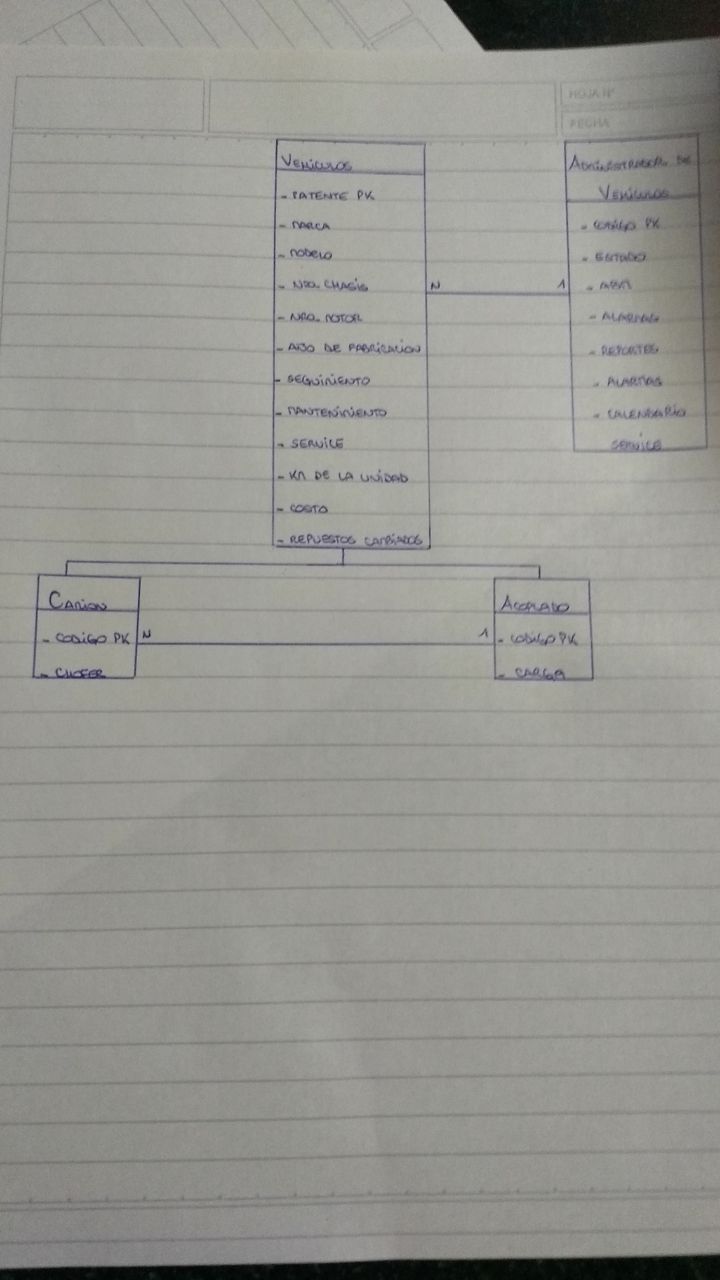 HOJA Nº
FECHA
VEHICULOS
- PATENTE PK
- MARCA
- MODELO
- NRO. CHASIS
- NRO. MOTOR
- AÑO DE FABRICACION
- SEGUIMIENTO
- MANTENIMIENTO
- SERVICE
- KM DE LA UNIDAD
- COSTO
- REPUESTOS CAMBIADOS
N 1
ADMINISTRADOR DE
VEHICULOS
- CODIGO PK
- ESTADO
- ABM
- ALARMAS
- REPORTES
- ALARMAS
- CALENDARIO
SERVICE
CAMION
- CODIGO PK
- CHOFER
N 1
ACOPLADO
- CODIGO PK
- CARGA